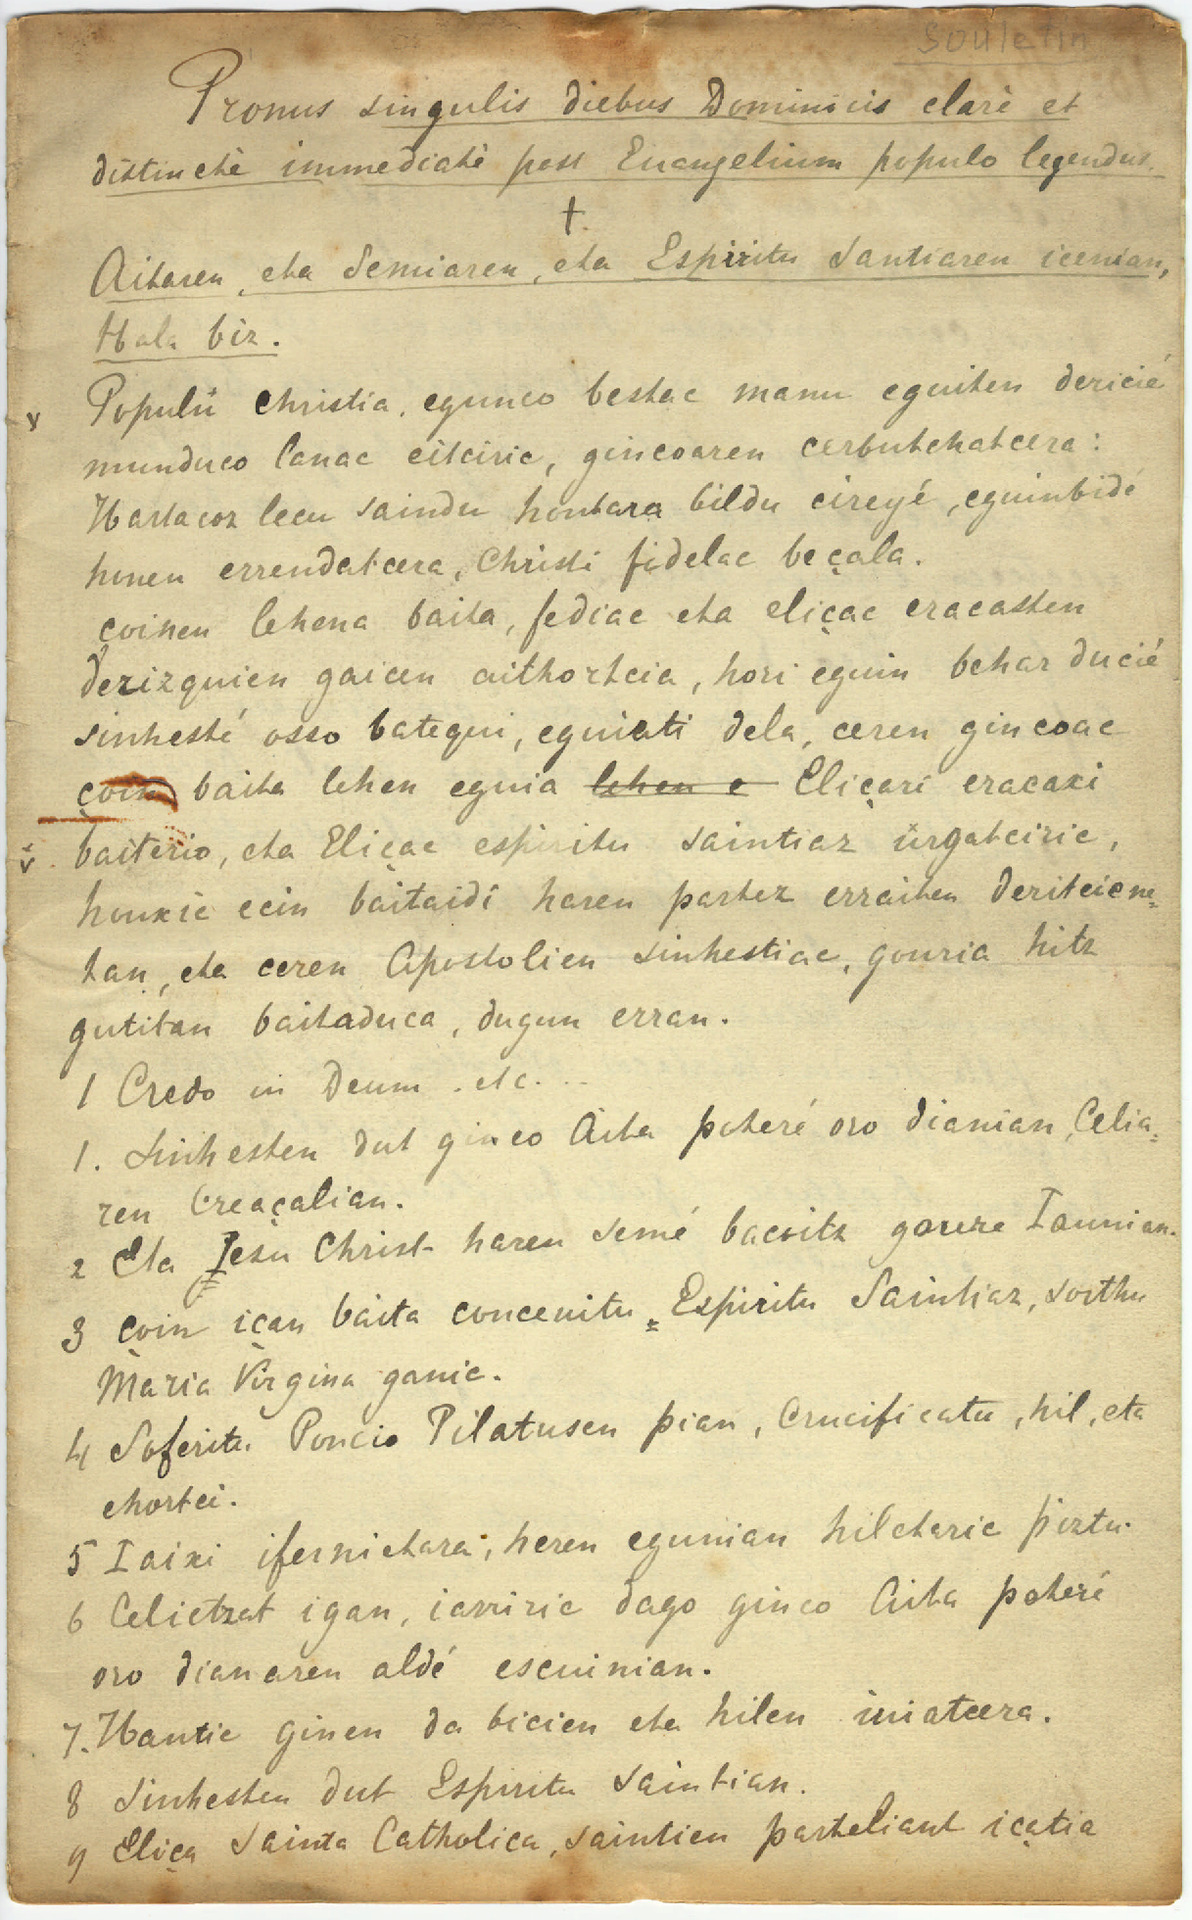 Souletin
Pronus singulis diebus Dominicis clarè et
distinctè immediatè post Euangelium populo legendus.
†
Aitaren, eta Semiaren, eta Espiritu Santiaren icenian,
Hala biz.
v Populü christia, egunco bestac manu eguiten dericié
munduco lanac eitciric, gincoaren cerbutchatcera:
Hartacoz lecu saindu hontara bildu cireyé, eguinbidé
honen errendatcera, Christi fidelac beçala.
çoinen lehena baita, fediac eta eliçac eracasten
derizquien gaicen aithortcia, hori eguin behar ducié
sinhesté osso batequi, eguiati dela, ceren gincoac
çoin baita lehen eguia lehen e Eliçari eracaxi
v. baiterio, eta Eliçac espiritu saintiaz ürgatciric,
houxic ecin baitaidi haren partez erraiten deritciene=
tan, eta ceren Apostolien sinhestiac, gouria hitz
gutitan baitaduca, dugun erran.
1 Credo in Deum . etc. . .
1. Sinhesten dut ginco Aita potheré oro dianian, Celia=
ren Creaçalian.
2 Eta Jesu Christ haren semé bacoitz goure Iaunian.
3 çoin içan baita conceuitu Espiritu Saintiaz, sorthu
Maria Virgina ganic.
4 Soferitu Poncio Pilatusen pian, Crucificatu, hil, eta
ehortci.
5 Iaixi ifernietara, heren egunian hiletaric piztu.
6 Celietzat igan, iarriric dago ginco Aita poteré
oro dianaren aldé escuinian.
7. Hantic ginen da bicien eta hilen iuiatcera.
8 Sinhesten dut Espiritu saintian.
9 Eliça Sainta Catholica, saintien parteliant içatia